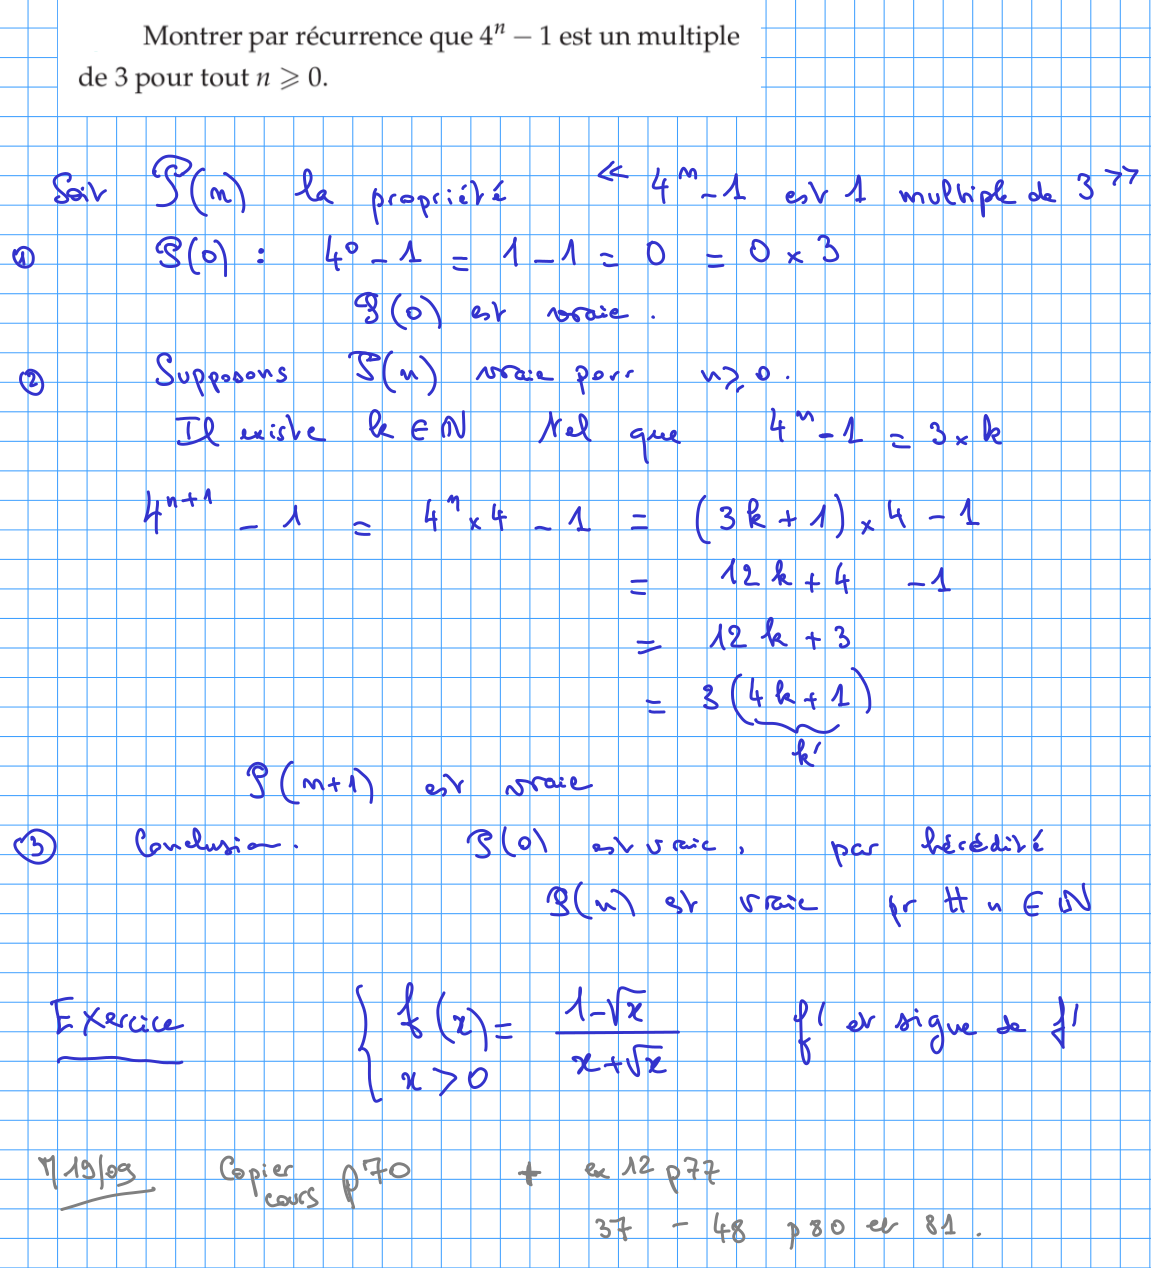 Montrer par récurrence que 4ⁿ − 1 est un multiple
de 3 pour tout n ⩾ 0.
Soit P(n) la propriété « 4ⁿ - 1 est 1 multiple de 3 »
① P(0) : 4⁰ - 1 = 1 - 1 = 0 = 0 × 3
P(0) est vraie.
② Supposons P(n) vraie pour n ⩾ 0.
Il existe k ∈ ℕ tel que 4ⁿ - 1 = 3 × k
4ⁿ⁺¹ - 1 = 4ⁿ × 4 - 1 = (3k + 1) × 4 - 1
= 12k + 4 - 1
= 12k + 3
= 3(4k + 1)
k'
P(n+1) est vraie
③ Conclusion. P(0) est vraie, par hérédité
P(n) est vraie pr tt n ∈ ℕ
Exercice { f(x) = (1-√x)/(x+√x) f' et signe de f'
x > 0
M 19/09 Copier cours p70 + ex 12 p77
37 - 48 p 80 et 81.